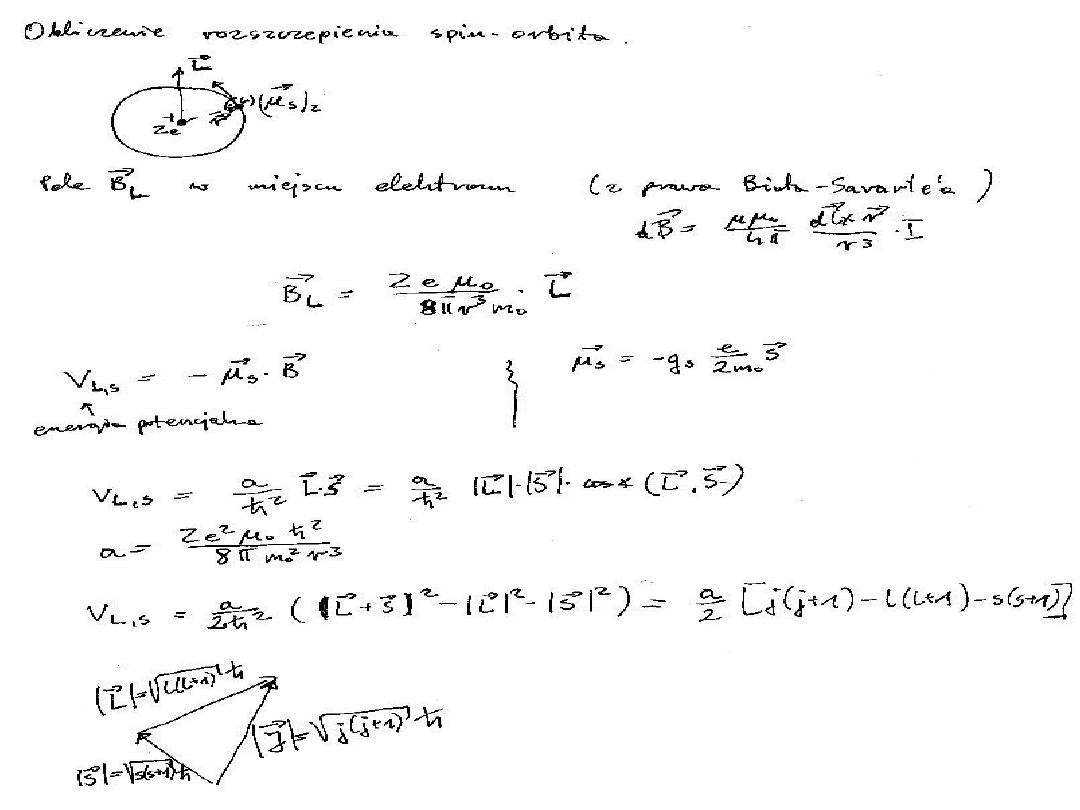 Obliczenie rozszczepienia spin-orbita.
L⃗
(μ⃗s)z
Ze r⃗
Pole B⃗L w miejscu elektronu (z prawa Biota-Savarte'a)
dB⃗ = μμ₀/4π · dl⃗×r⃗/r³ · I
B⃗L = Zeμ₀/8πr³m₀ · L⃗
VL,s = − μ⃗s · B⃗
μ⃗s = −gs e/2m₀ s⃗
energia potencjalna
VL,s = a/ħ² L⃗·s⃗ = a/ħ² |L⃗|·|s⃗|· cos∢(L⃗,s⃗)
a = Ze²μ₀ħ²/8πm₀²r³
VL,s = a/2ħ² ([L⃗+s⃗]² − |L⃗|² − |s⃗|²) = a/2 [j(j+1) − l(l+1) − s(s+1)]
|L⃗|=√l(l+1) ħ
|j⃗|=√j(j+1) ħ
|s⃗|=√s(s+1) ħ